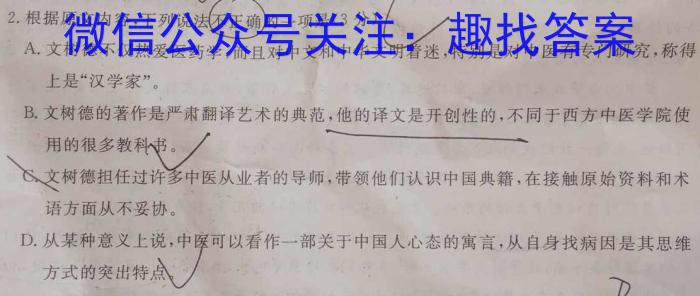 2.根据原文内容,下列说法不正确的一项是(3分)
微信公众号关注：趣找答案
A.文树德不仅热爱医药学,而且对中文和中华文明着迷,特别是对中医有专门研究,称得
上是“汉学家”。
B.文树德的著作是严肃翻译艺术的典范,他的译文是开创性的,不同于西方中医学院使
用的很多教科书。
C.文树德担任过许多中医从业者的导师,带领他们认识中国典籍,在接触原始资料和术
语方面从不妥协。
D.从某种意义上说,中医可以看作一部关于中国人心态的寓言,从自身找病因是其思维
方式的突出特点。